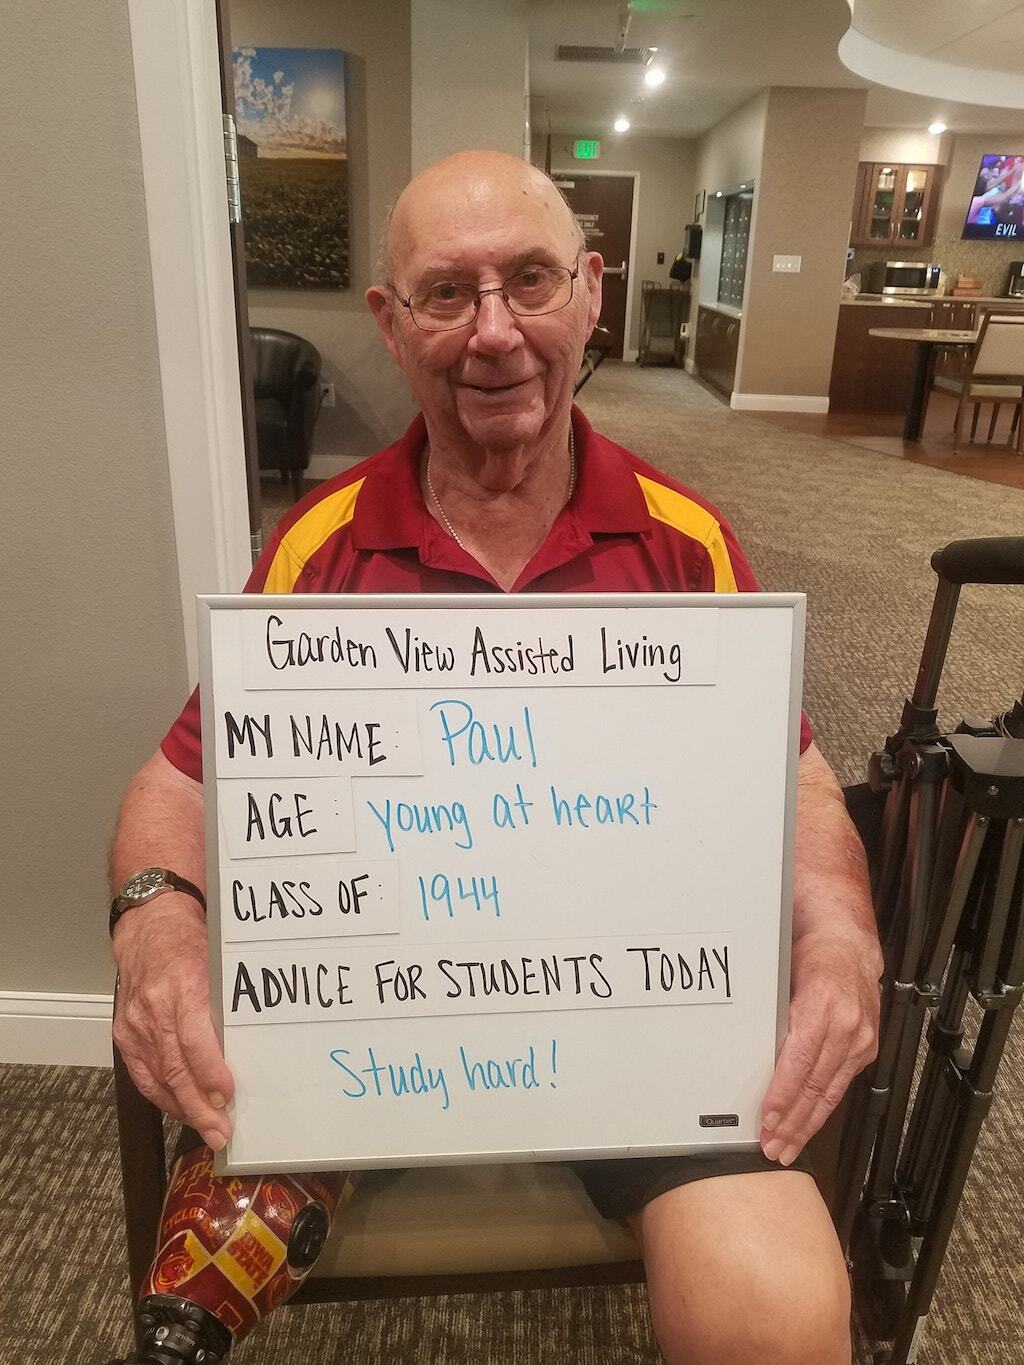 EXIT
EVIL
Garden View Assisted Living
MY NAME: Paul
AGE: young at heart
CLASS OF: 1944
ADVICE FOR STUDENTS TODAY
Study hard!
Quartet
STATE
CYCLONES
IOWA
STATE